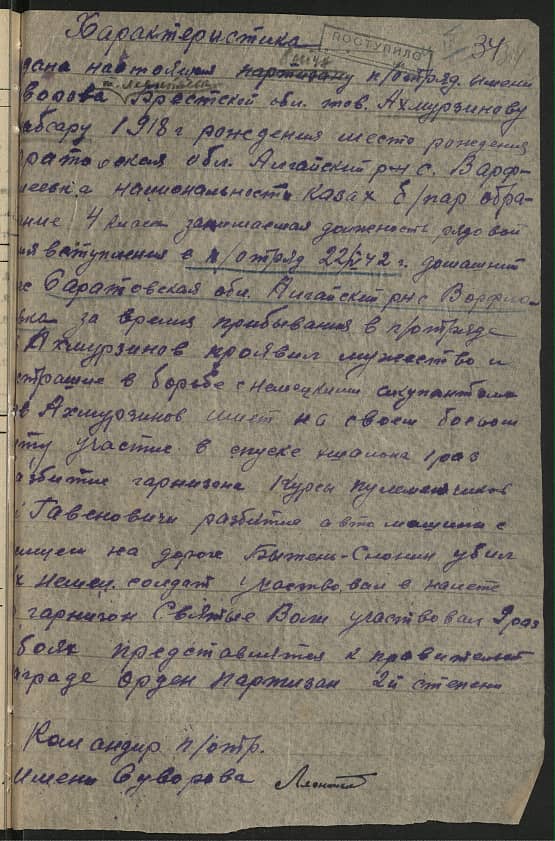 Характеристика
ПОСТУПИЛО
34
дана настоящая партизану п/отряд. имени
Брестской обл. тов. Ахмурзинову
1918 г рождения место рождения
обл. Алгайский р-н с. Варф-
национальность казах б/пар обра-
4 класса занимаемая должность рядовой
вступления в п/отряд 22/V 42 г. домашний
Саратовская обл. Алгайский р-н с Ворфло-
вка за время прибывания в п/отряде
Ахмурзинов проявил мужество и
в борьбе с немецкими окупантами
Ахмурзинов имеет на своем боевом
участие в спуске эшалона 1 раз
гарнизона Курсы пулеметчиков
Гавеновичи разбитие автомашины с
на дороге Бытень-Слонин убил
немец. солдат участвовал в налете
гарнизон Святые Воли участвовал 9 раз
боях представляется к правительст
аграде орден партизан 2й степени
Командир п/отр.
имени Суворова